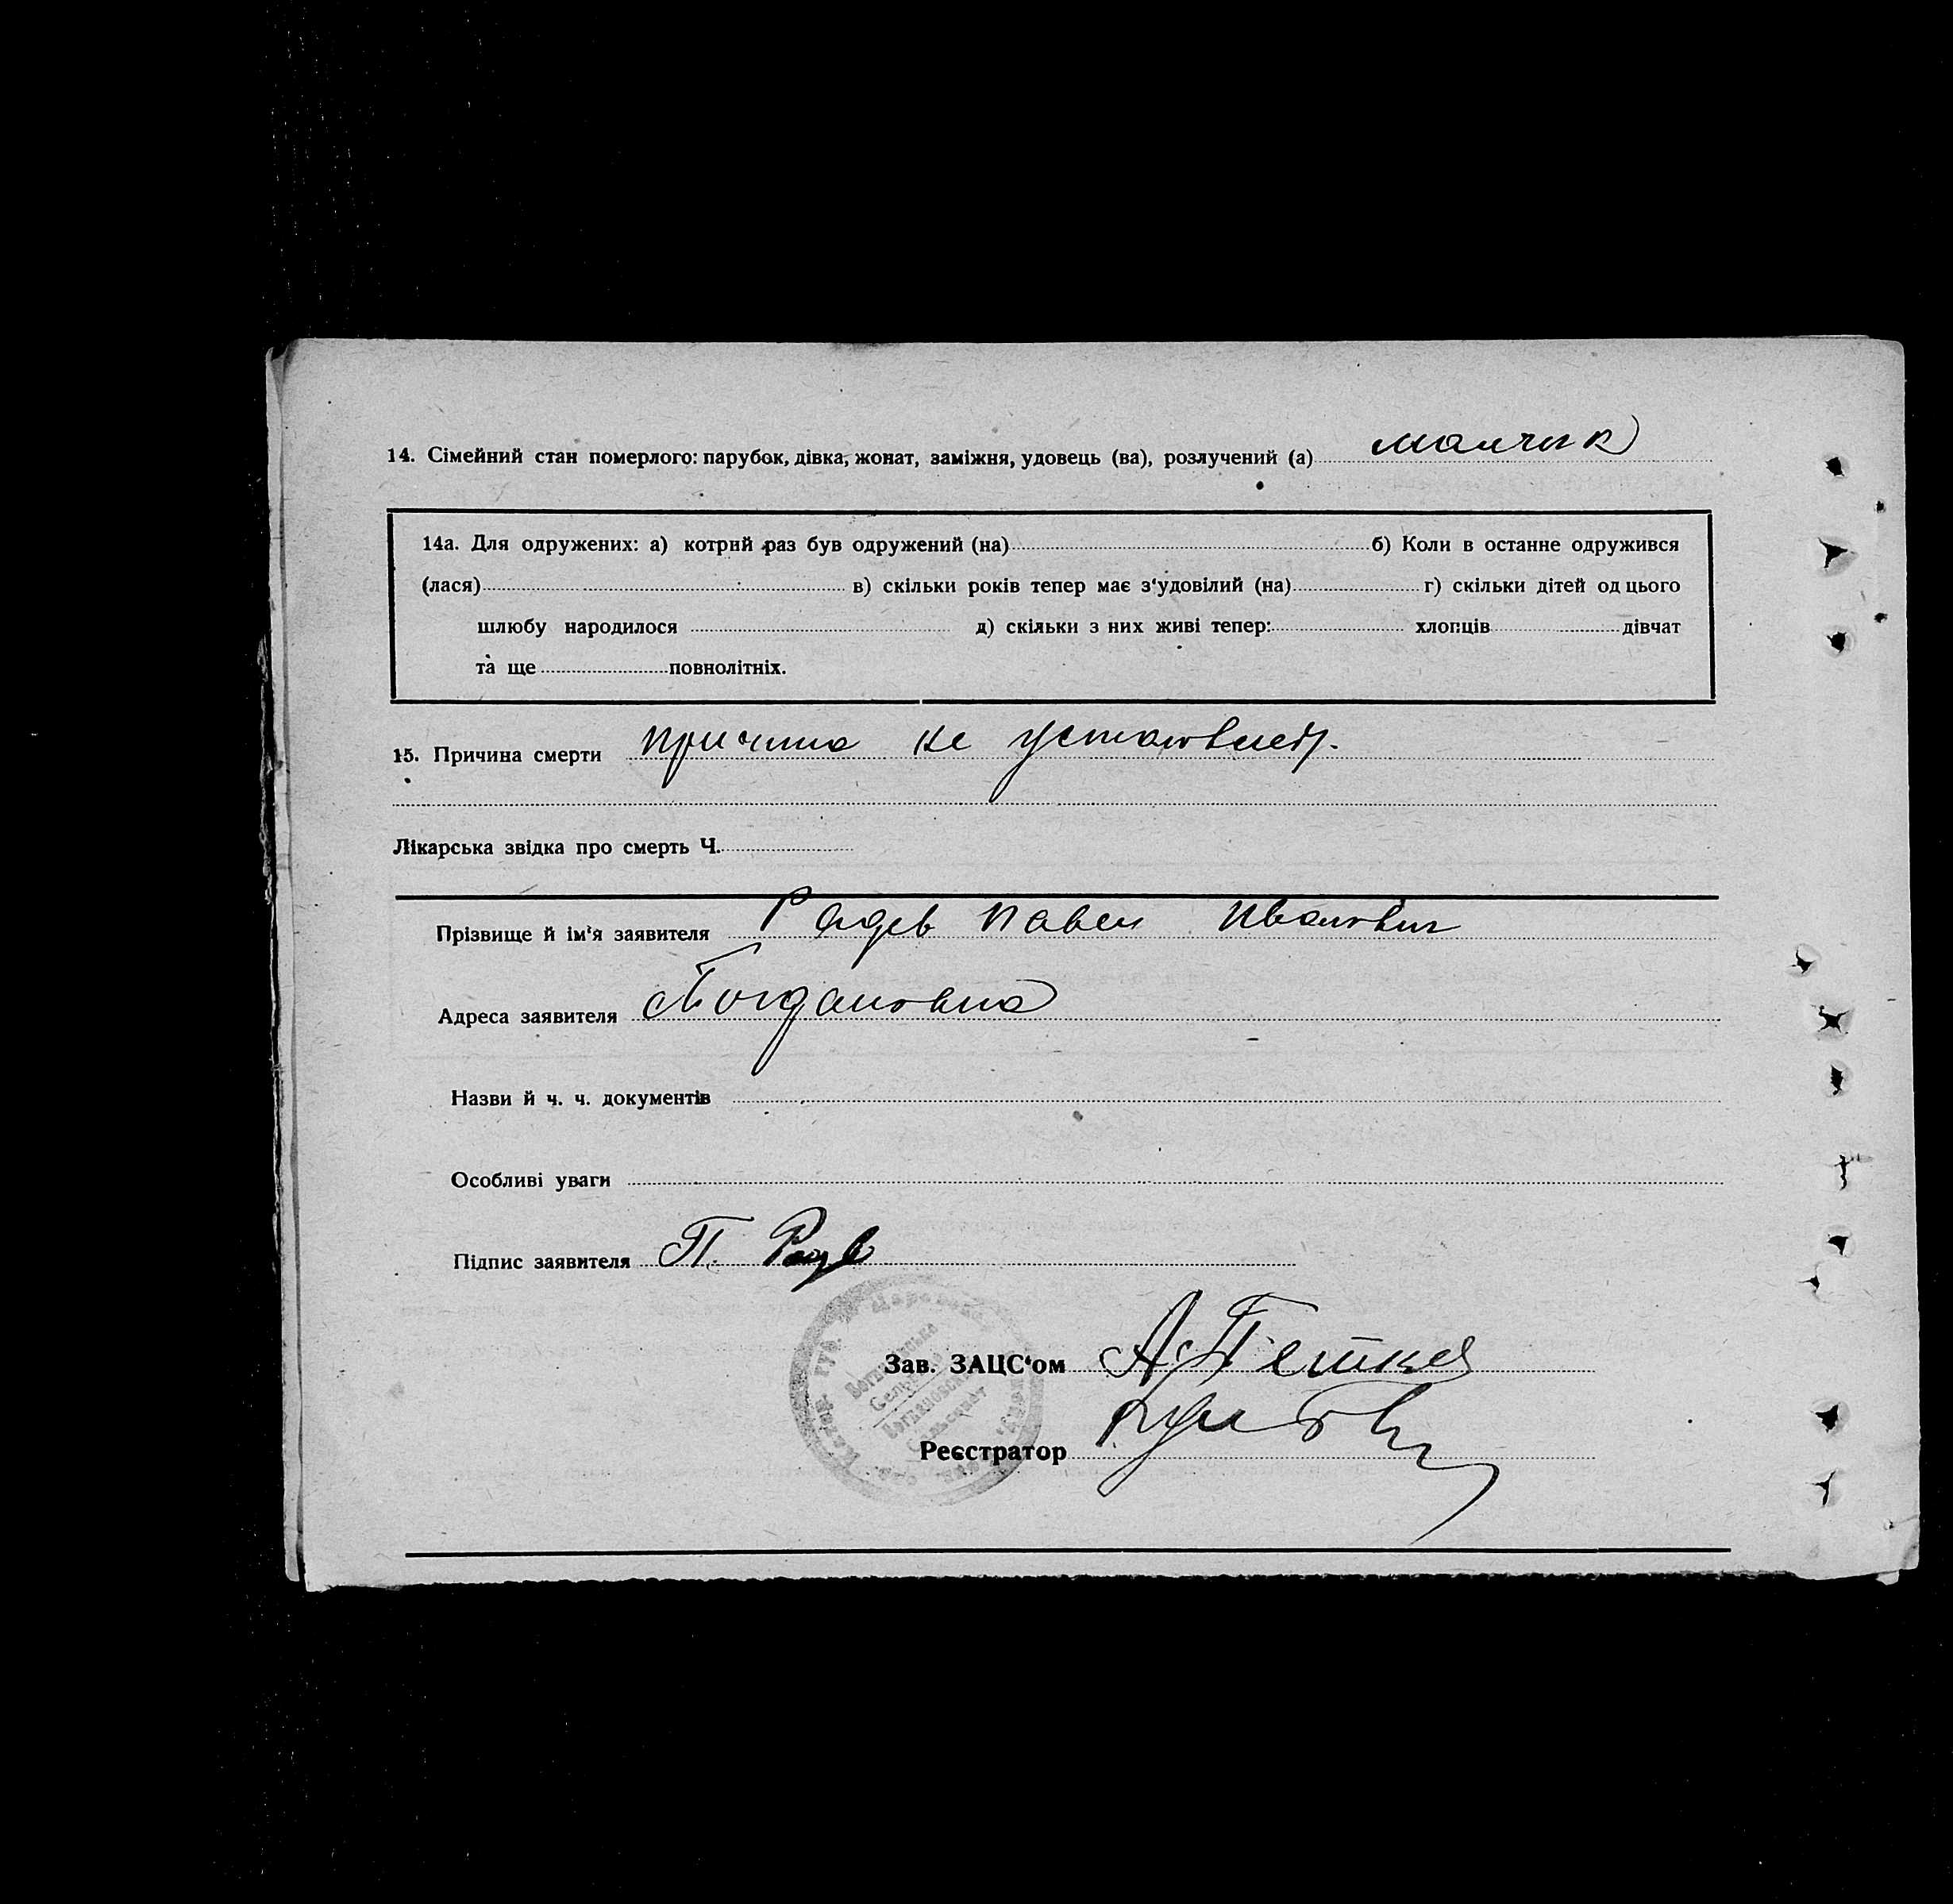 14. Сімейний стан померлого: парубок, дівка, жонат, заміжня, удовець (ва), розлучений (а) малчик
14а. Для одружених: а) котрий раз був одружений (на) б) Коли в останне одружився
(лася) в) скільки років тепер має з'удовілий (на) г) скільки дітей од цього
шлюбу народилося д) скільки з них живі тепер: хлопців дівчат
та ще повнолітніх.
15. Причина смерти причина не установлен.
Лікарська звідка про смерть Ч.
Прізвище й ім'я заявителя Радев Павел Иванович
Адреса заявителя Богдановка
Назви й ч. ч. документів
Особливі уваги
Підпис заявителя П. Радев
Зав. ЗАЦС'ом А Петков
Реєстратор